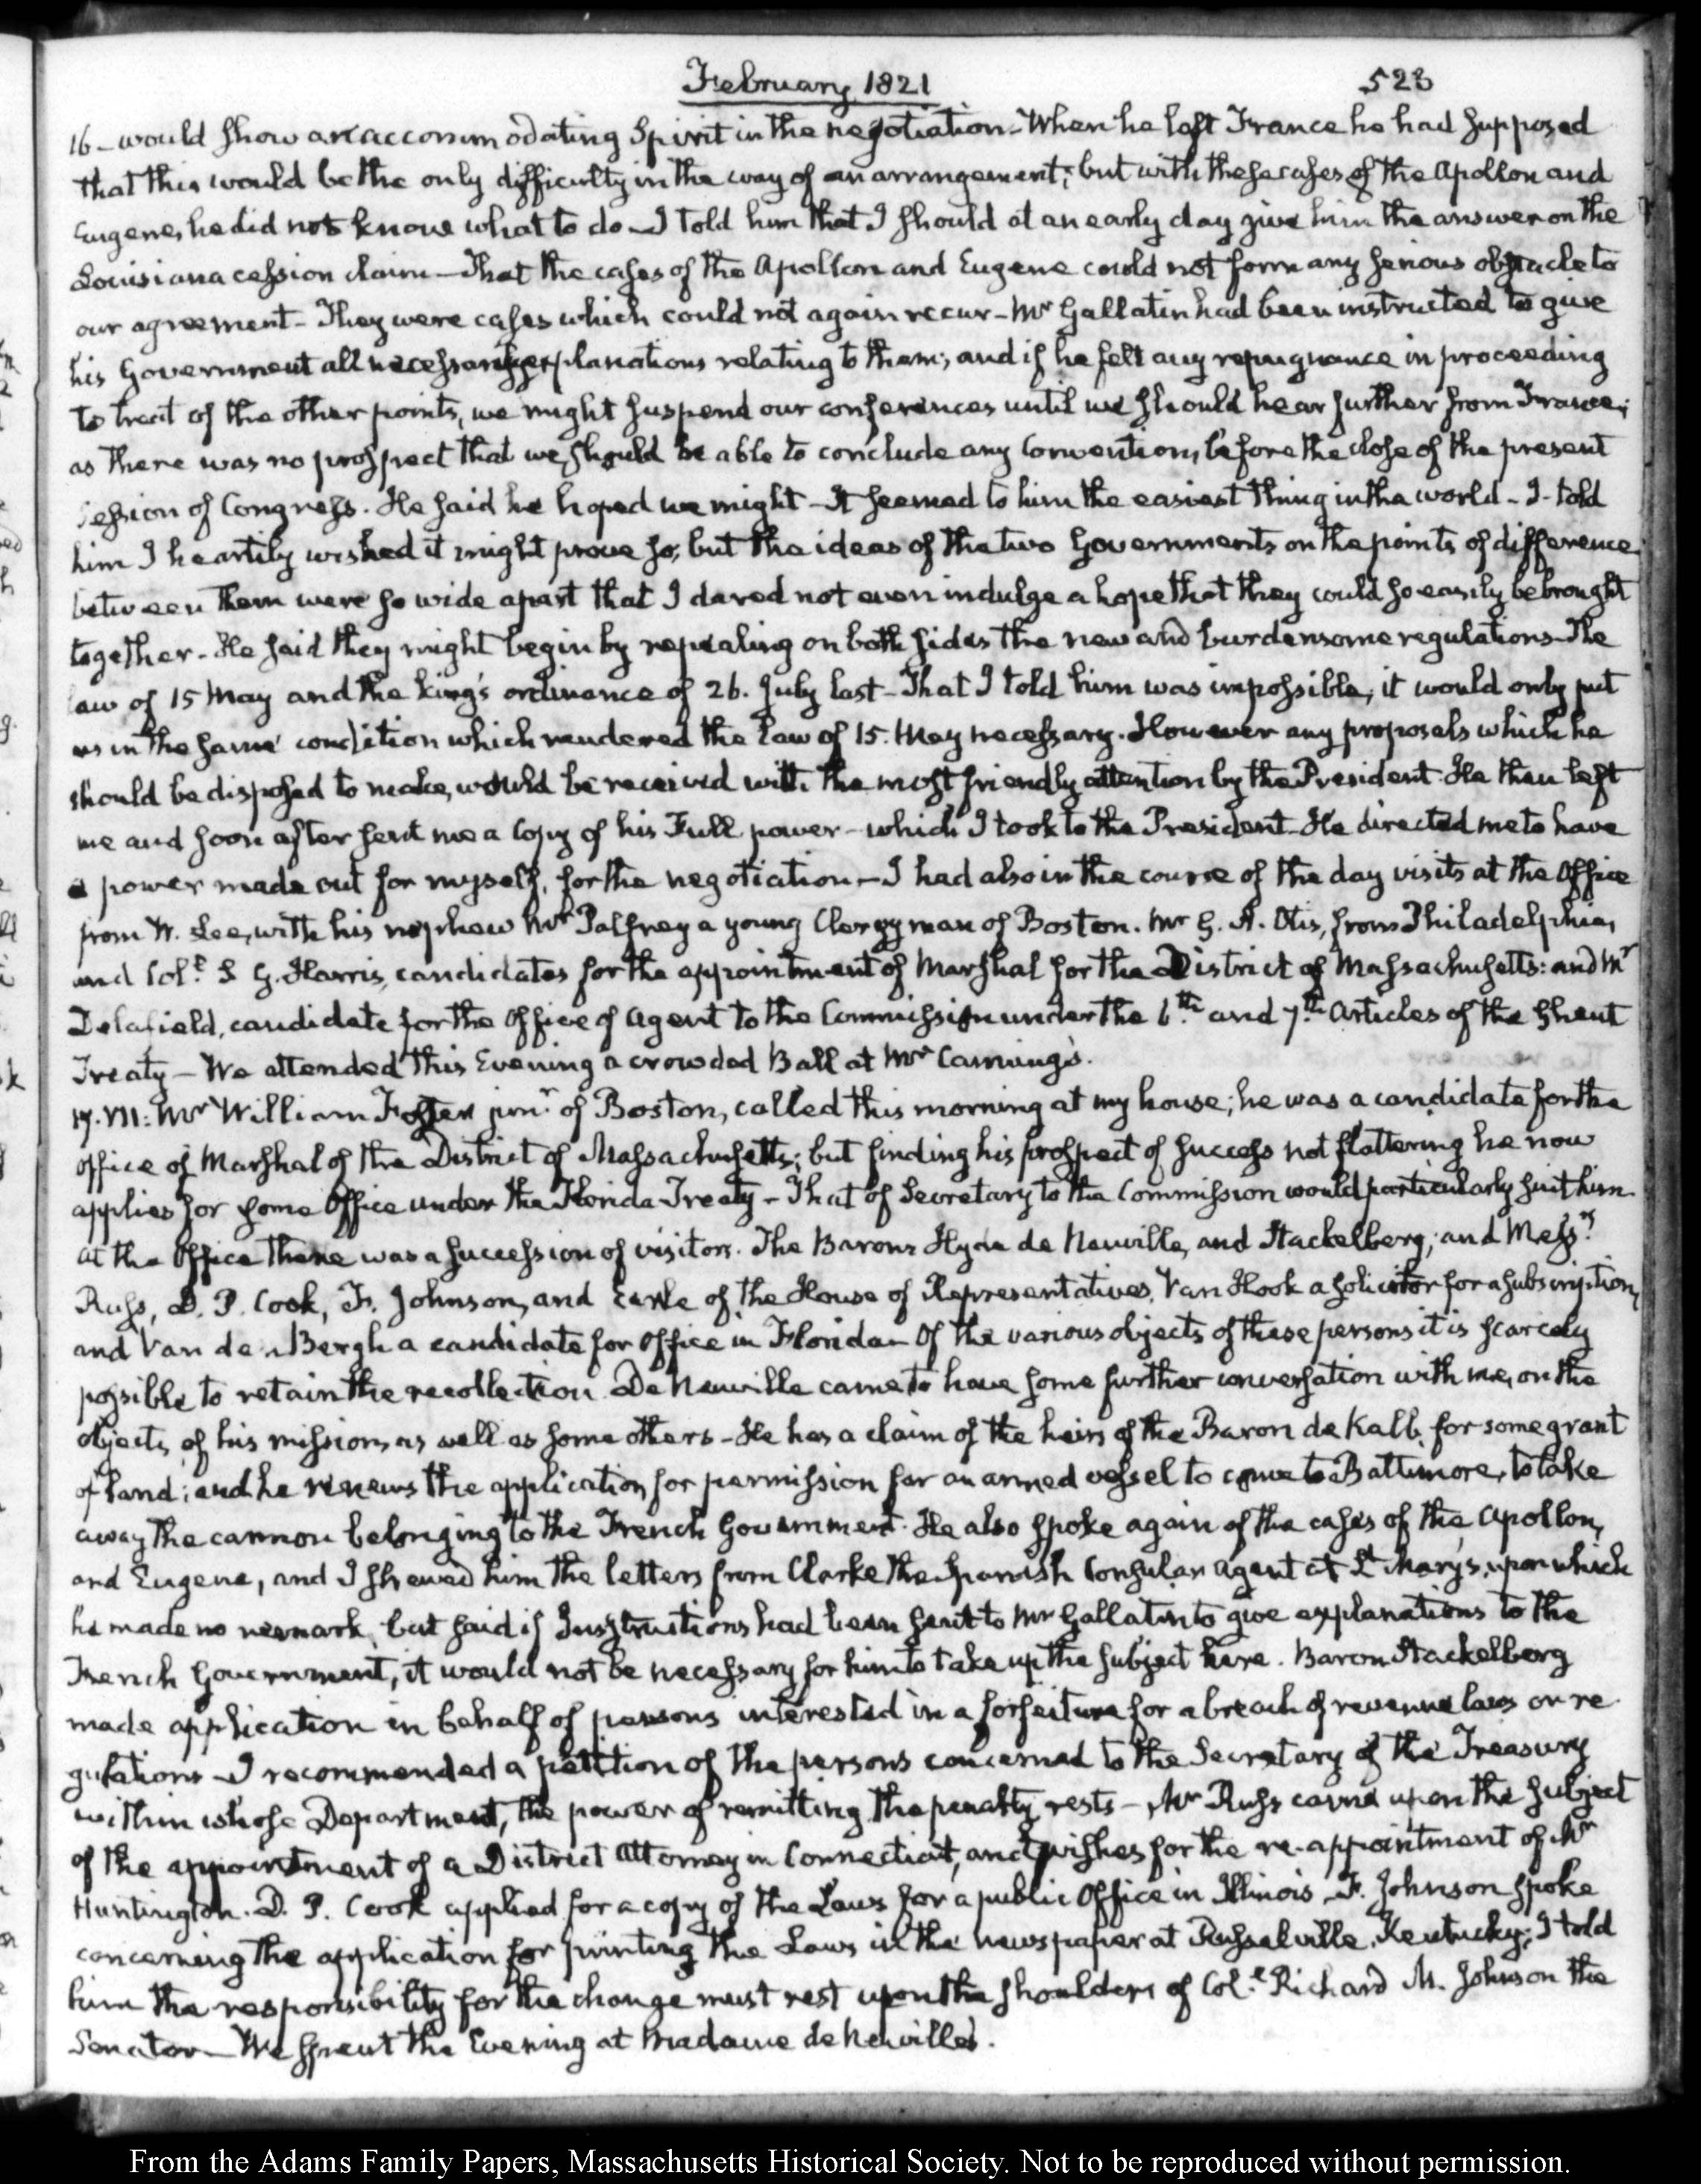 February 1821 523
16 – would show an accommodating Spirit in the negotiation – When he left France he had supposed
that this would be the only difficulty in the way of an arrangement; but with these cases of the Apollon and
Eugene, he did not know what to do – I told him that I should at an early day give him the answer on the
Louisiana cession claim – That the cases of the Apollon and Eugene could not form any serious obstacle to
our agreement – They were cases which could not again recur – Mr Gallatin had been instructed to give
his Government all necessary explanations relating to them; and if he felt any repugnance in proceeding
to treat of the other points, we might suspend our conferences until we should hear further from France;
as there was no prospect that we should be able to conclude any Convention, before the close of the present
session of Congress. He said he hoped we might – It seemed to him the easiest thing in the world – I told
him I heartily wished it might prove so; but the ideas of the two Governments on the points of difference
between them were so wide apart that I dared not even indulge a hope that they could so easily be brought
together – He said they might begin by repealing on both sides the new and burdensome regulations – The
law of 15 May and the King's ordinance of 26. July last – That I told him was impossible, it would only put
us in the same condition which rendered the Law of 15. May necessary. However any proposals which he
should be disposed to make, would be received with the most friendly attention by the President – He then left
me and soon after sent me a Copy of his Full power – which I took to the President – He directed me to have
a power made out for myself, for the negotiation – I had also in the course of the day visits at the Office
from W. Lee, with his nephew Mr Palfrey a young Clergyman of Boston. Mr G. A. Otis, from Philadelphia,
and Coll. S G. Harris, candidates for the appointment of Marshal for the District of Massachusetts: and Mr
Delafield, candidate for the Office of Agent to the Commission under the 6th and 7th Articles of the Ghent
Treaty – We attended this Evening a crowded Ball at Mrs Canning's.
17. VII: Mr William Foster junr of Boston, called this morning at my house; he was a candidate for the
office of Marshal of the District of Massachusetts; but finding his prospect of success not flattering he now
applies for some Office under the Florida Treaty – That of Secretary to the Commission would particularly suit him.
At the Office there was a succession of visitors. The Barons Hyde de Neuville, and Stackelberg; and Messrs
Russ, D. P. Cook, F. Johnson, and Earle of the House of Representatives, Van Hook a solicitor for a subscription,
and Van den Bergh a candidate for Office in Florida – Of the various objects of these persons it is scarcely
possible to retain the recollection. De Neuville came to have some further conversation with me, on the
objects of his mission, as well as some others – He has a claim of the heirs of the Baron de Kalb, for some grant
of Land; and he renews the application, for permission for an armed vessel to come to Baltimore, to take
away the cannon belonging to the French Government. He also spoke again of the cases of the Apollon,
and Eugene, and I shewed him the letters from Clarke the Spanish Consular Agent at St Mary's, upon which
he made no remark, but said if Instructions had been sent to Mr Gallatin to give explanations to the
French Government, it would not be necessary for him to take up the subject here. Baron Stackelberg
made application in behalf of persons interested in a forfeiture for a breach of revenue laws or re
gulations – I recommended a petition of the persons concerned to the Secretary of the Treasury
within whose Department, the power of remitting the penalty rests – Mr Russ came upon the subject
of the appointment of a District Attorney in Connecticut, and wishes for the re-appointment of Mr
Huntington. D. P. Cook applied for a copy of the Laws for a public Office in Illinois – F. Johnson spoke
concerning the application for printing the Laws in the newspaper at Russelville, Kentucky; I told
him the responsibility for the change must rest upon the shoulders of Coll. Richard M. Johnson the
Senator – We spent the Evening at Madame de Neuville's.
From the Adams Family Papers, Massachusetts Historical Society. Not to be reproduced without permission.